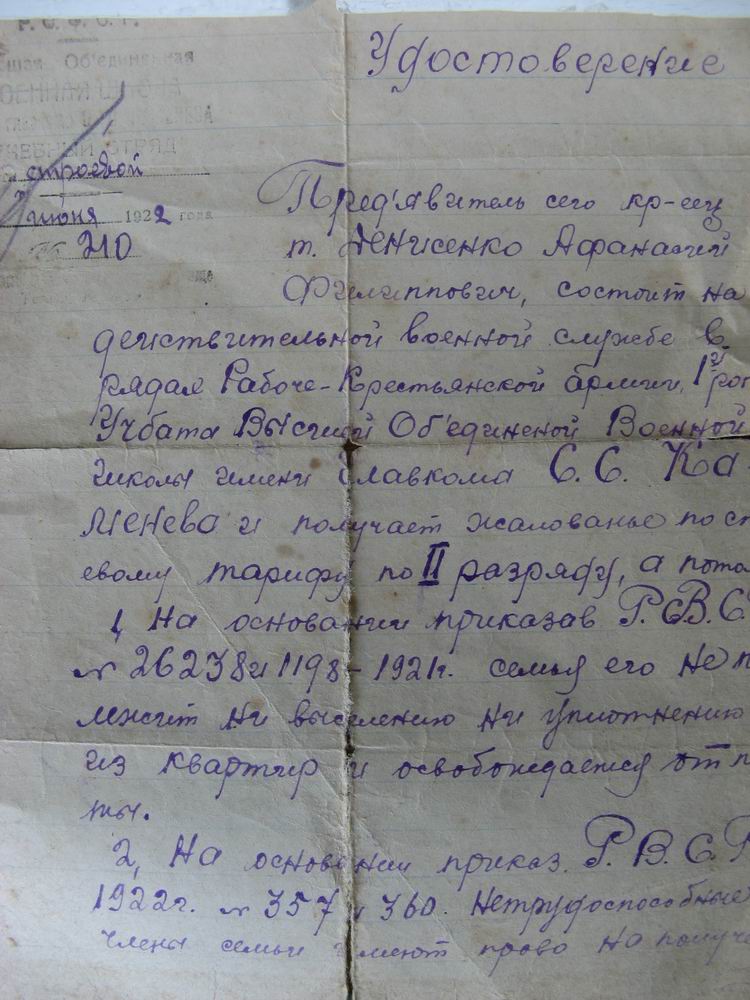 Р. С. Ф. С. Р.
Удостоверение
Об'единенная
строевой
июня 1922 года
№ 210
Пред'явитель сего кр-еец
т. Денисенко Афанасий
Филиппович, состоит на
действительной военной службе в
рядах Рабоче-Крестьянской армии, 1й рот
Учбата Высшей Об'единеной Военной
школы имени Главкома С.С. Ка
менева и получает жалованье по ст
евому тарифу по II разряду, а пото
1, На основании приказав Р.В.С.
№ 2623 и 1198-1921г. семья его не п
лжит ни выселению ни уплотнению
из квартир и освобождается от п
ты.
2, На основании приказ. Р.В.С.Р
1922г. № 357 и 360. Нетрудоспособные
члены семьи имеют право на получе